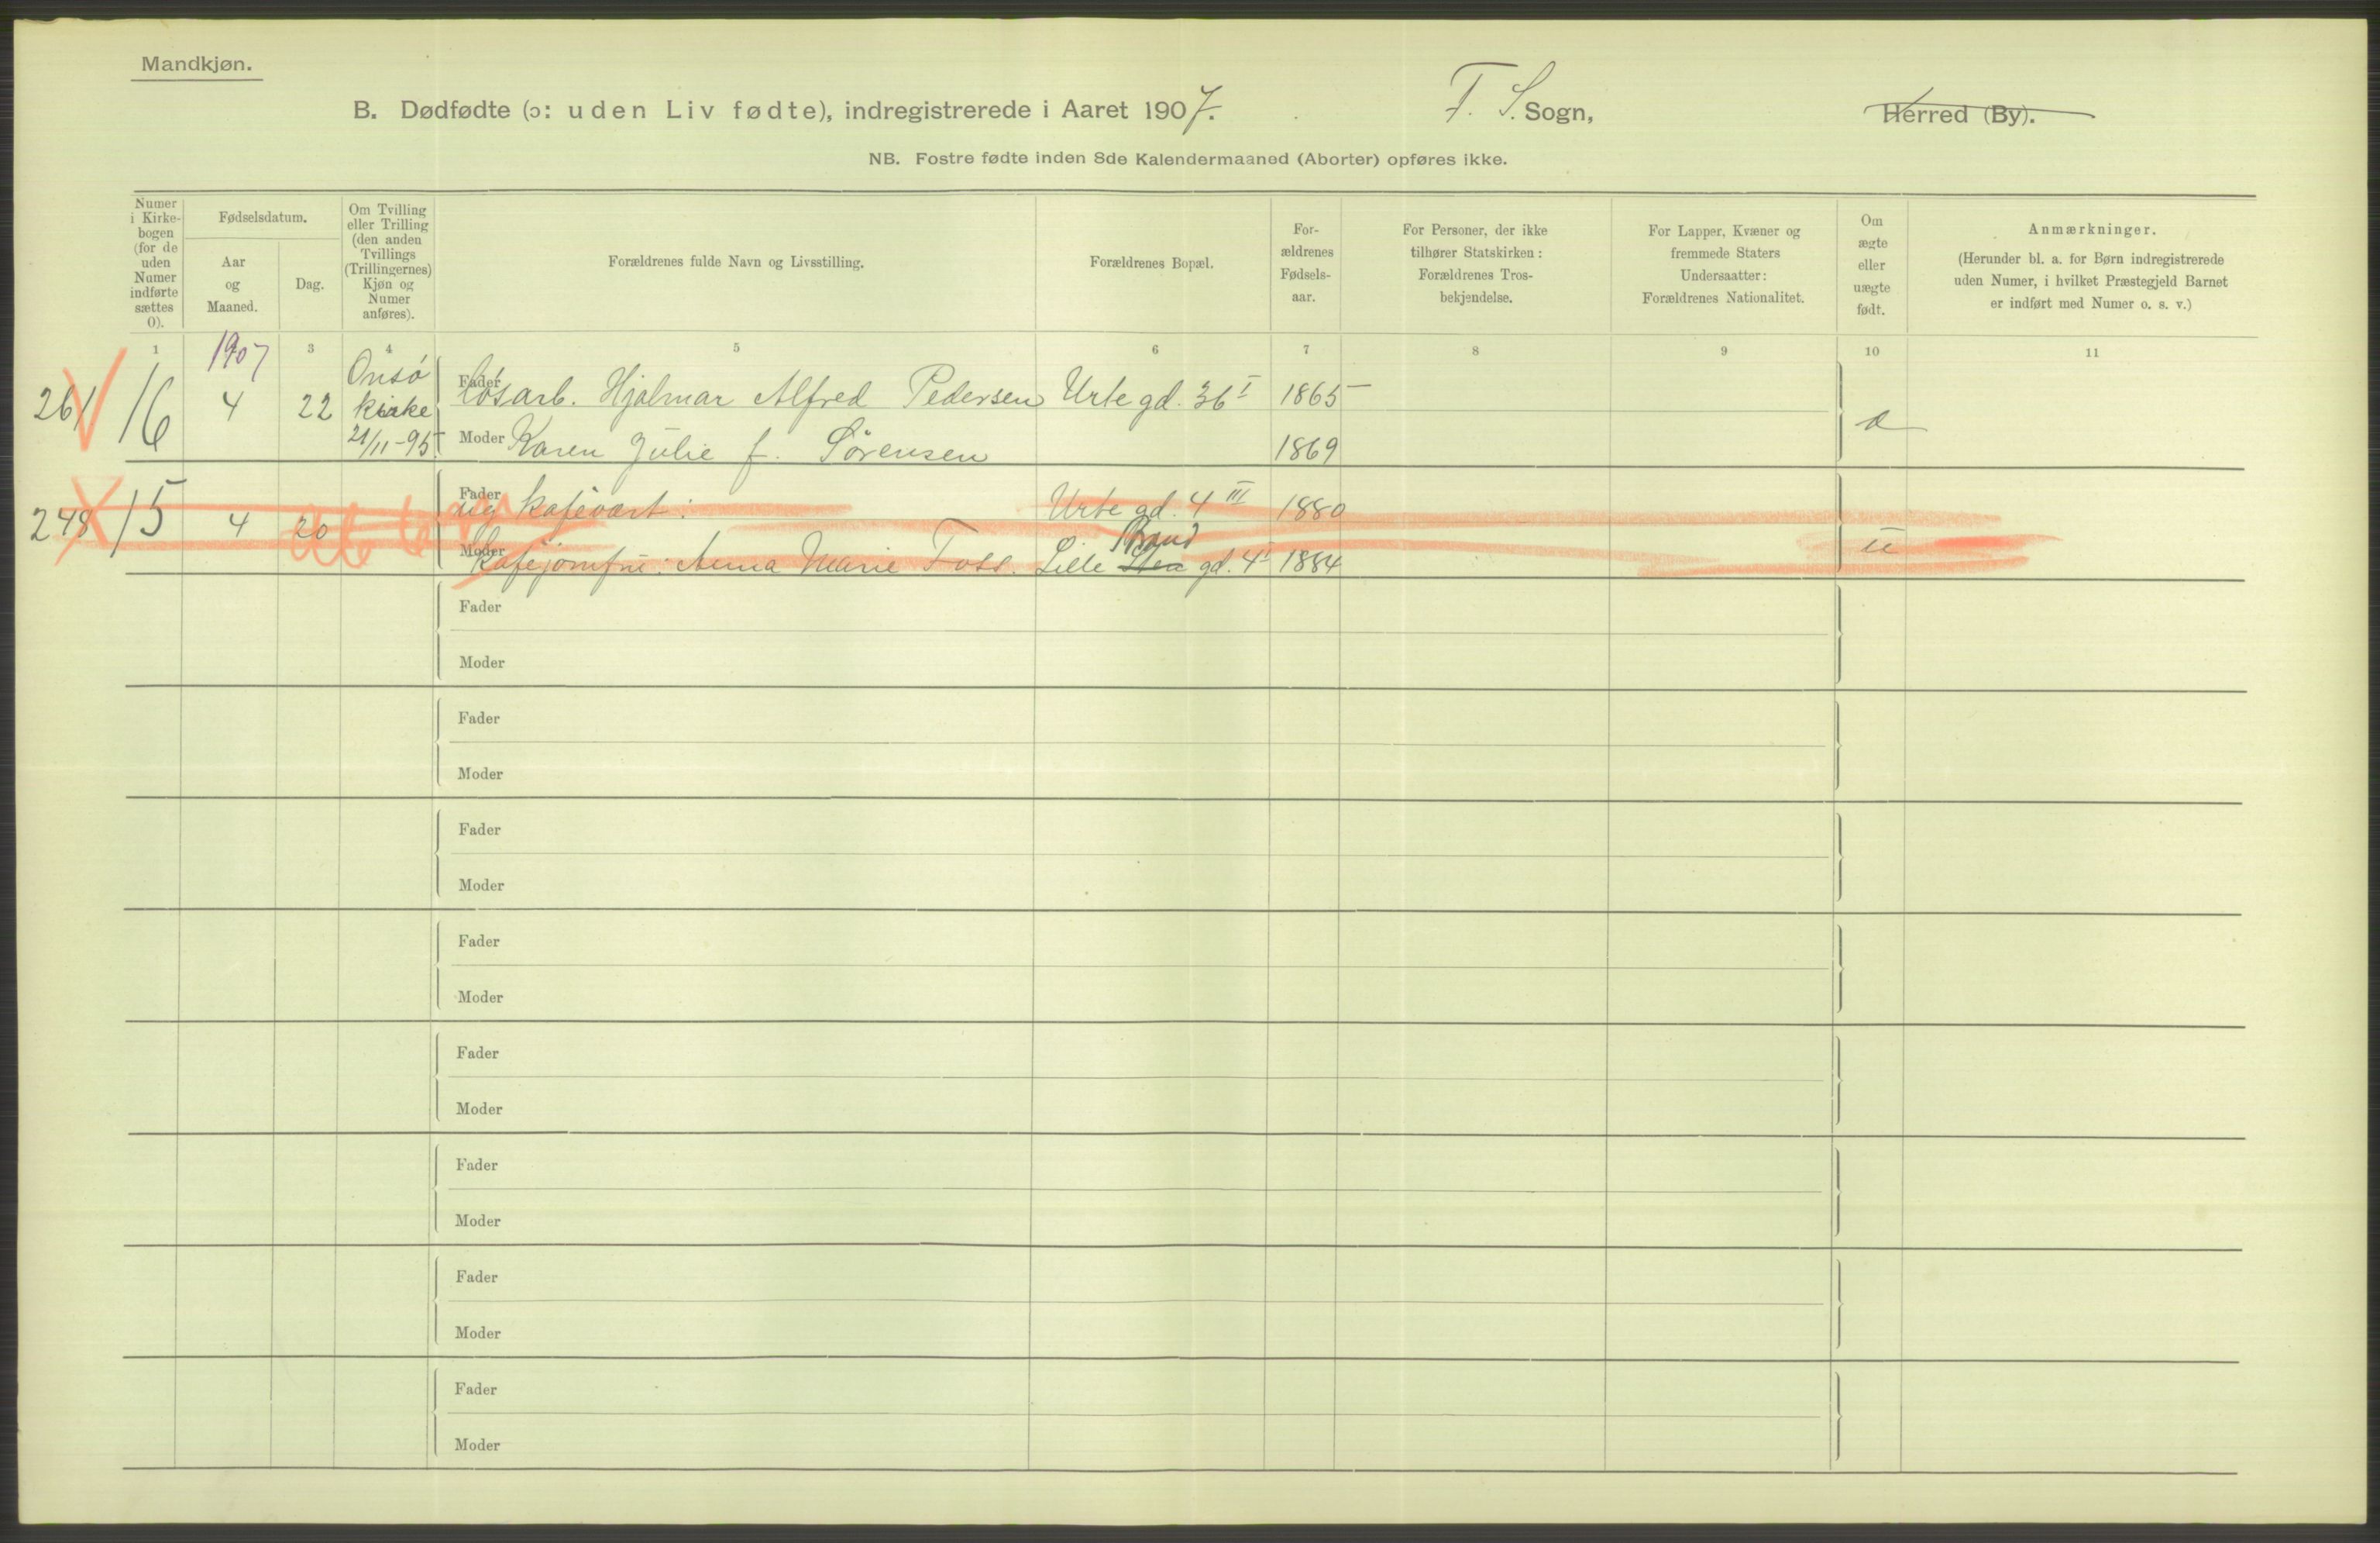 Mandkjøn.
B. Dødfødte (ɔ: uden Liv fødte), indregistrerede i Aaret 1907. F. S. Sogn, Herred (By).
NB. Fostre fødte inden 8de Kalendermaaned (Aborter) opføres ikke.
Numer i Kirkebogen (for de uden Numer indførte sættes 0).
Fødselsdatum.
Aar og Maaned.
Dag.
Om Tvilling eller Trilling (den anden Tvillings (Trillingernes) Kjøn og Numer anføres).
Forældrenes fulde Navn og Livsstilling.
Forældrenes Bopæl.
Forældrenes Fødselsaar.
For Personer, der ikke tilhører Statskirken: Forældrenes Trosbekjendelse.
For Lapper, Kvæner og fremmede Staters Undersaatter: Forældrenes Nationalitet.
Om ægte eller uægte født.
Anmærkninger.
(Herunder bl. a. for Børn indregistrerede uden Numer, i hvilket Præstegjeld Barnet er indført med Numer o. s. v.)
1 3 4 5 6 7 8 9 10 11
1907
261 16 4 22 Onsö kirke 21/11-95
Fader Løsarb. Hjalmar Alfred Pedersen Urtegd. 36 I 1865
Moder Karen Julie f. Sørensen 1869
248 15 4 20
Fader ug kafévært: Urtegd. 4 III 1880
Moder Kaféjomfru: Anna Marie Foss. Lille Strand gd. 4 I 1884 u
Fader
Moder
Fader
Moder
Fader
Moder
Fader
Moder
Fader
Moder
Fader
Moder
Fader
Moder
Fader
Moder